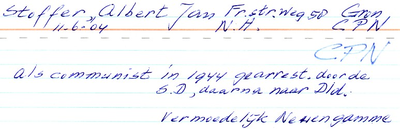 Stoffer, Albert Jan Fr.str.weg 50 Gron
11-6-04 N.H. CPN
CPN
als communist in 1944 gearrest. door de
S.D, daarna naar Dld.
Vermoedelijk Neuengamme